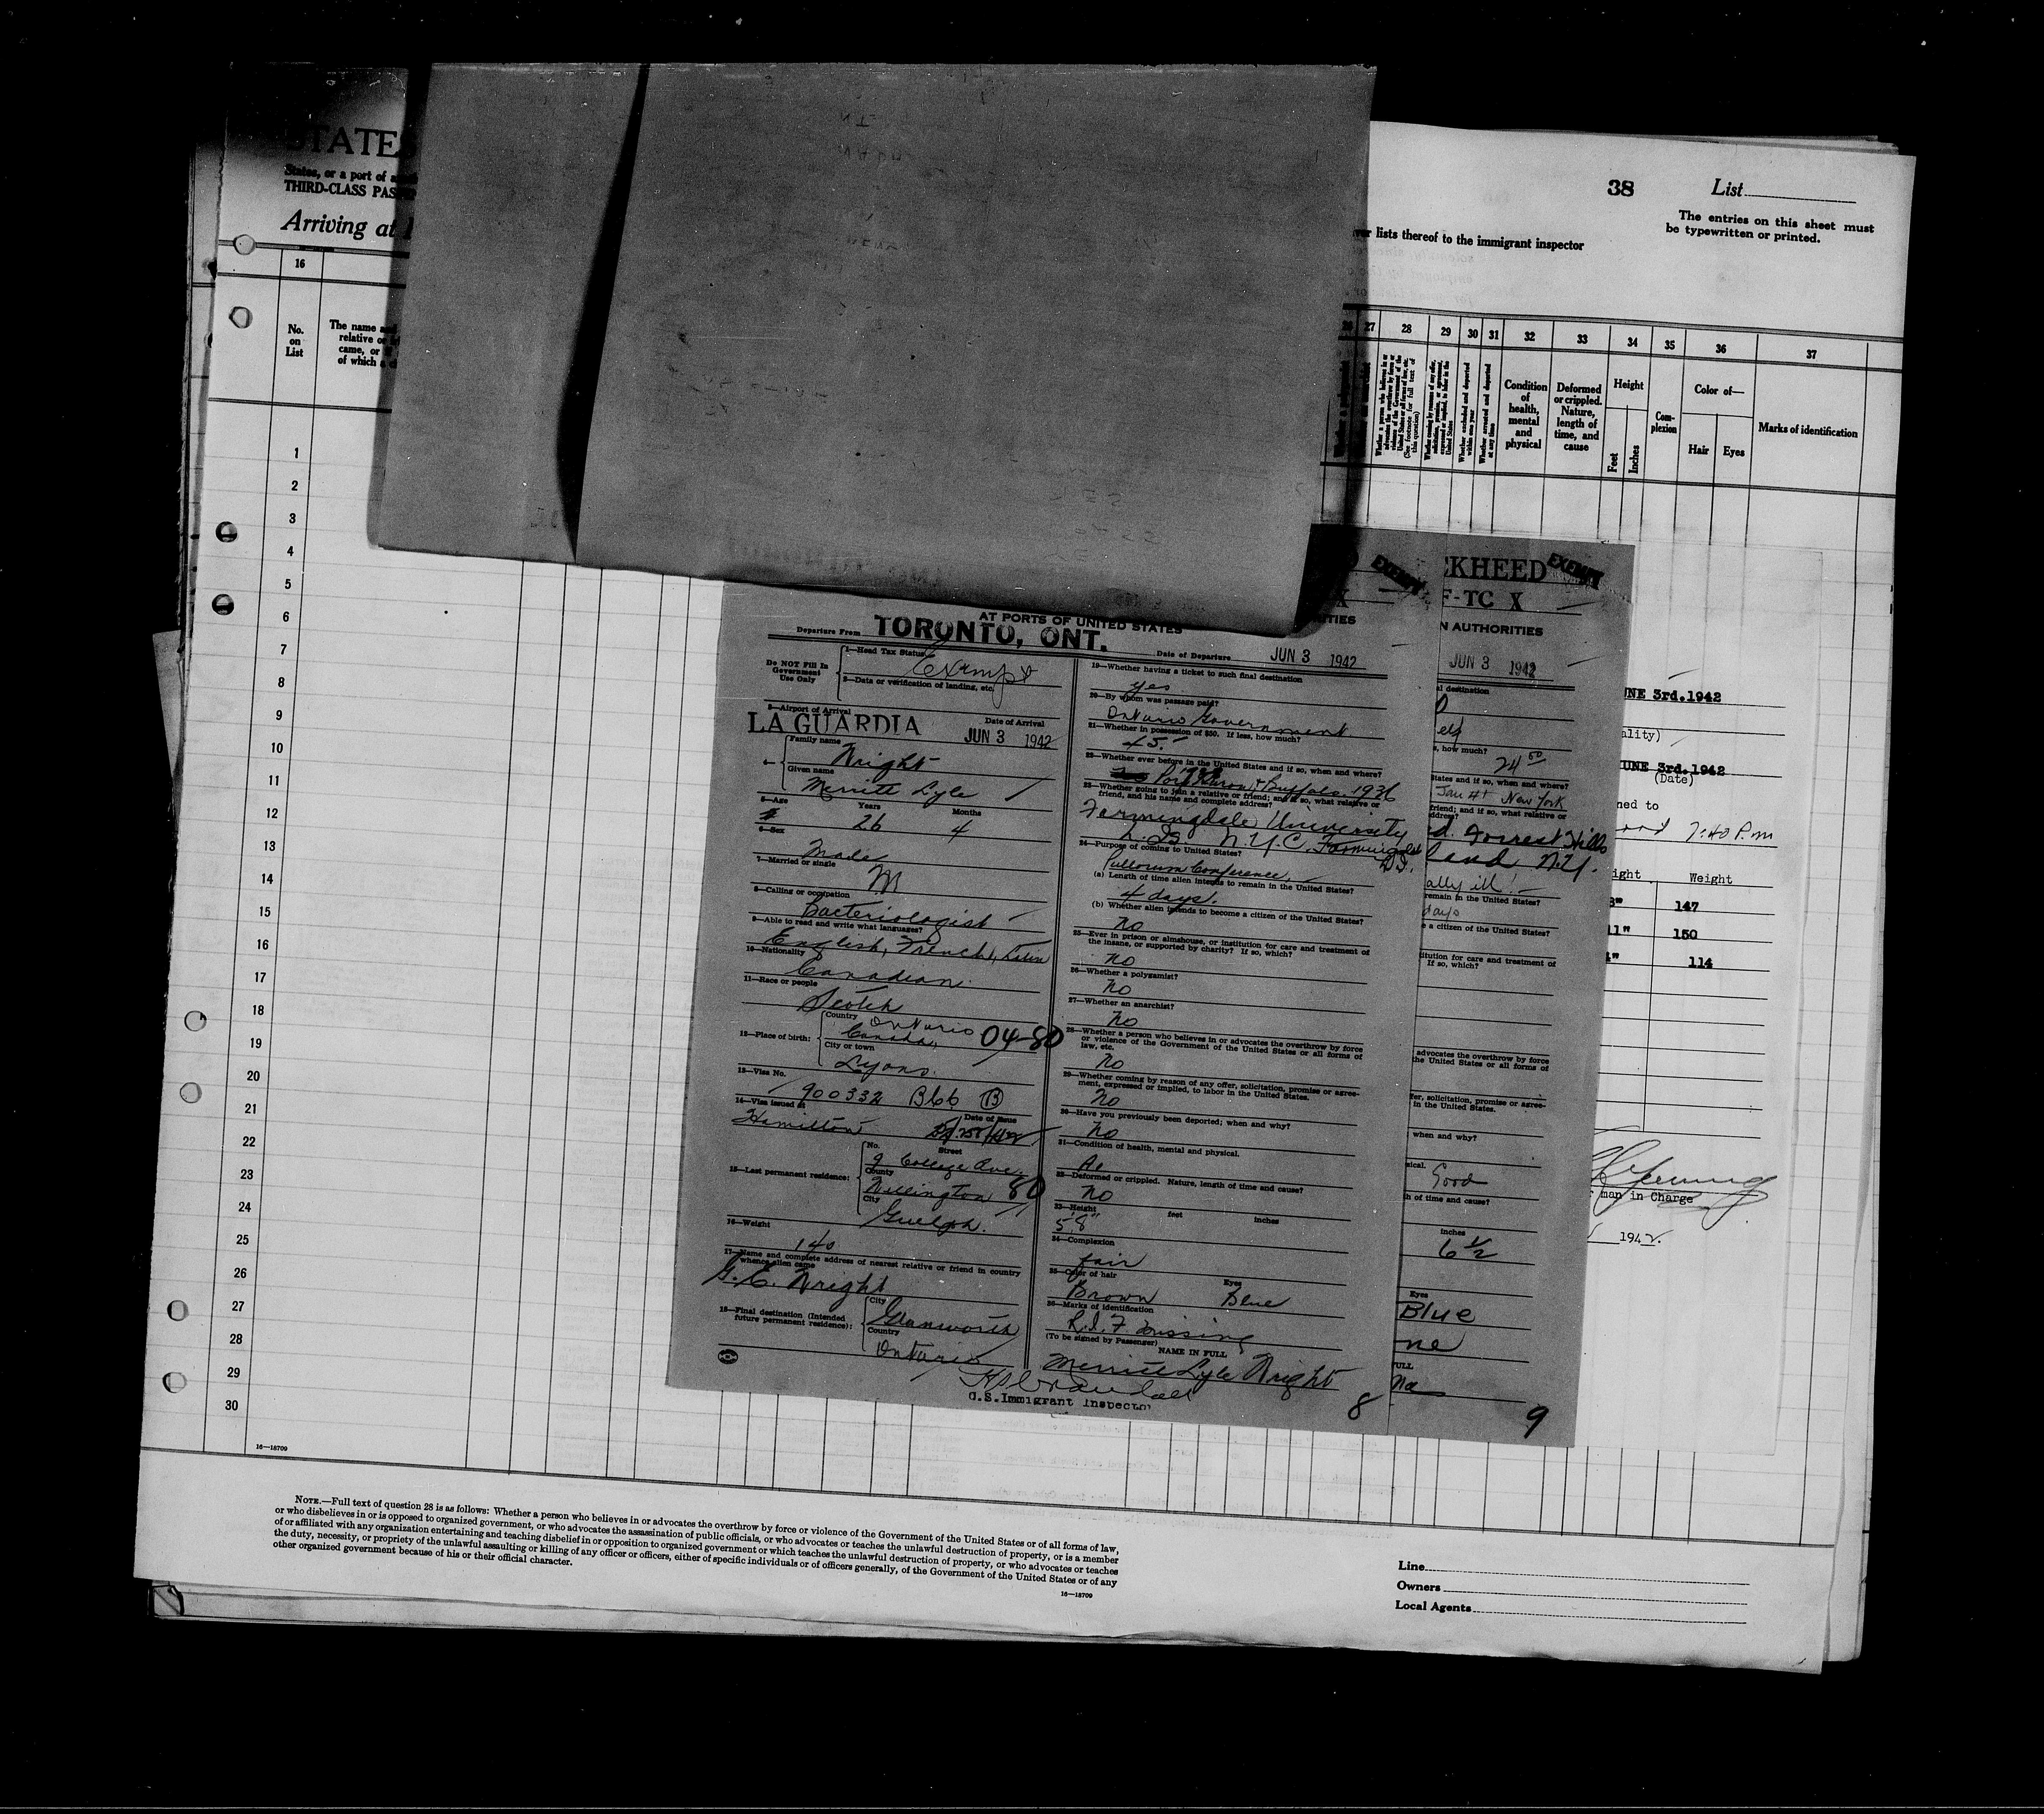 STATES
States, or a port of a
THIRD-CLASS PAS
Arriving at
38
List
The entries on this sheet must
be typewritten or printed.
lists thereof to the immigrant inspector
16
No.
on
List
The name and
relative or
came, or
of which a
27 28 29 30 31 32 33 34 35 36 37
Whether a person who believes in or
advocates the overthrow by force or
violence of the Government of the
United States or all forms of law, etc.
(See footnote for full text of
this question)
Whether coming by reason of any offer,
solicitation, promise, or agreement,
expressed or implied, to labor in the
United States
Whether excluded and deported
within one year
Whether arrested and deported
at any time
Condition
of
health,
mental
and
physical
Deformed
or crippled.
Nature,
length of
time, and
cause
Height
Feet
Inches
Com-
plexion
Color of—
Hair
Eyes
Marks of identification
1
2
3
4
5
6
7
8
9
10
11
12
13
14
15
16
17
18
19
20
21
22
23
24
25
26
27
28
29
30
16—18709
AT PORTS OF UNITED STATES
Departure From TORONTO, ONT.
Date of Departure JUN 3 1942
Do NOT Fill In
Government
Use Only
1—Head Tax Status
Exempt
2—Data or verification of landing, etc.
3—Airport of Arrival
Date of Arrival
LA GUARDIA JUN 3 1942
4
Family name
Wright
Given name
Merritt Lyle
5—Age
Years
Months
26 4
6—Sex
Male
7—Married or single
M
8—Calling or occupation
Bacteriologist
9—Able to read and write what languages?
English, French, Latin
10—Nationality
Canadian
11—Race or people
Scotch
12—Place of birth:
Country
Ontario
Canada, 04-80
City or town
Lyons.
13—Visa No.
900332 B66 B
14—Visa issued at
Date of Issue
Hamilton
15—Last permanent residence:
No.
Street
9 College Ave.
County
Wellington 80
City
Guelph.
16—Weight
140
17—Name and complete address of nearest relative or friend in country
whence alien came
G. E. Wright
18—Final destination (Intended
future permanent residence):
City
Glanworth
Country
Ontario
U.S. Immigrant Inspector
19—Whether having a ticket to such final destination
yes
20—By whom was passage paid?
Ontario Government
21—Whether in possession of $50. If less, how much?
45.–
22—Whether ever before in the United States and if so, when and where?
Port Huron & Buffalo 1936
23—Whether going to join a relative or friend; and if so, what relative or
friend, and his name and complete address?
Farmingdale University
N.Y.C. Farmingdale
L.I.
24—Purpose of coming to United States?
Pullorum Conference.
(a) Length of time alien intends to remain in the United States?
4 days.
(b) Whether alien intends to become a citizen of the United States?
No
25—Ever in prison or almshouse, or institution for care and treatment of
the insane, or supported by charity? If so, which?
No
26—Whether a polygamist?
No
27—Whether an anarchist?
No
28—Whether a person who believes in or advocates the overthrow by force
or violence of the Government of the United States or all forms of
law, etc.
No
29—Whether coming by reason of any offer, solicitation, promise or agree-
ment, expressed or implied, to labor in the United States.
No
30—Have you previously been deported; when and why?
No
31—Condition of health, mental and physical.
32—Deformed or crippled. Nature, length of time and cause?
No
33—Height
feet
inches
5'8"
34—Complexion
fair
35—Color of hair
Eyes
Brown Blue
36—Marks of identification
R.I.F missing
(To be signed by Passenger)
NAME IN FULL
Merritt Lyle Wright
8
EXEMPT
X
CKHEED
EXEMPT
F-TC X
N AUTHORITIES
JUN 3 1942
al destination
s, how much?
24 50
States and if so, when and where?
Jan 41 New York
friend; and if so, what relative or
ddress?
d. Forrest Hills
land N.Y.
ally ill!
remain in the United States?
days
e a citizen of the United States?
itution for care and treatment of
If so, which?
advocates the overthrow by force
the United States or all forms of
fer, solicitation, promise or agree-
in the United States.
when and why?
sical.
Good
h of time and cause?
inches
6 1/2
Eyes
Blue
ne
FULL
na
9
UNE 3rd.1942
ality)
JUNE 3rd.1942
(Date)
ned to
7:40 P.m
ight Weight
8" 147
11" 150
114
man in Charge
1942.
NOTE.—Full text of question 28 is as follows: Whether a person who believes in or advocates the overthrow by force or violence of the Government of the United States or of all forms of law,
or who disbelieves in or is opposed to organized government, or who advocates the assassination of public officials, or who advocates or teaches the unlawful destruction of property, or is a member
of or affiliated with any organization entertaining and teaching disbelief in or opposition to organized government or which teaches the unlawful destruction of property, or who advocates or teaches
the duty, necessity, or propriety of the unlawful assaulting or killing of any officer or officers, either of specific individuals or of officers generally, of the Government of the United States or of any
other organized government because of his or their official character.
16—18709
Line
Owners
Local Agents